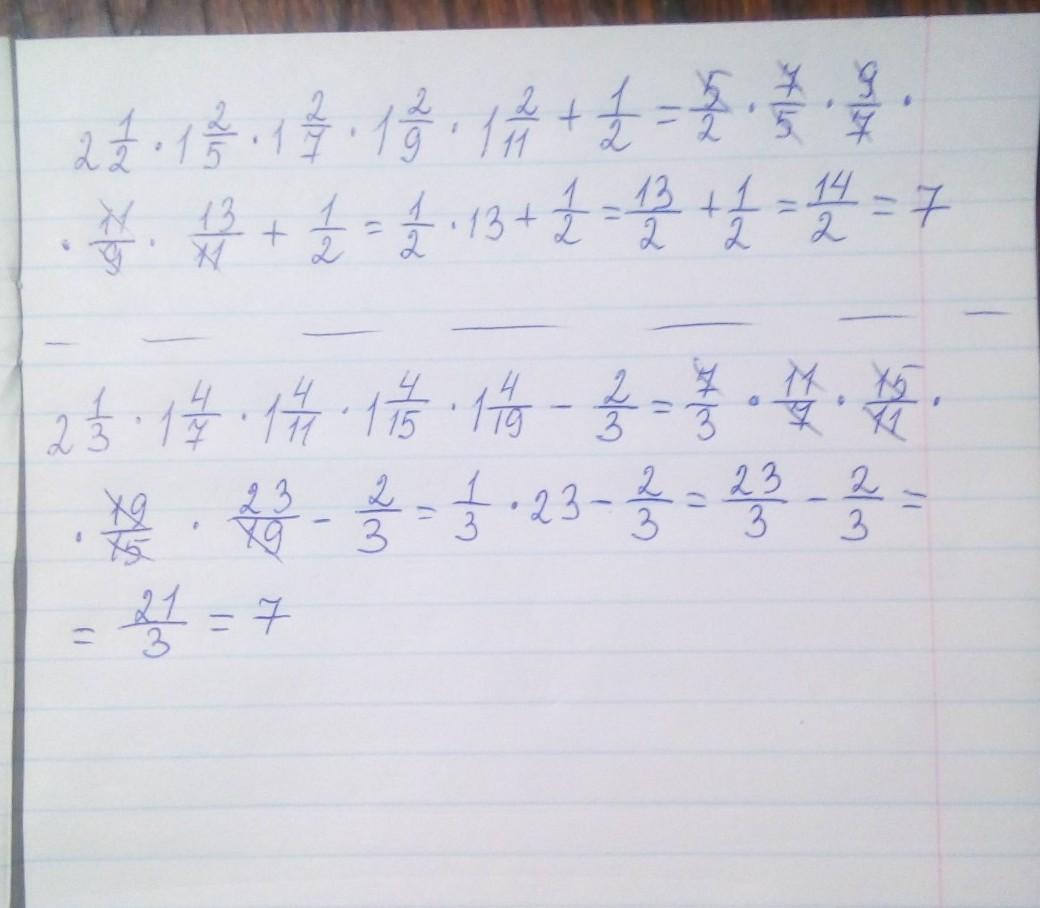 2 1/2 · 1 2/5 · 1 2/7 · 1 2/9 · 1 2/11 + 1/2 = 5/2 · 7/5 · 9/7 ·
· 11/9 · 13/11 + 1/2 = 1/2 · 13 + 1/2 = 13/2 + 1/2 = 14/2 = 7
2 1/3 · 1 4/7 · 1 4/11 · 1 4/15 · 1 4/19 - 2/3 = 7/3 · 11/7 · 15/11 ·
· 19/15 · 23/19 - 2/3 = 1/3 · 23 - 2/3 = 23/3 - 2/3 =
= 21/3 = 7